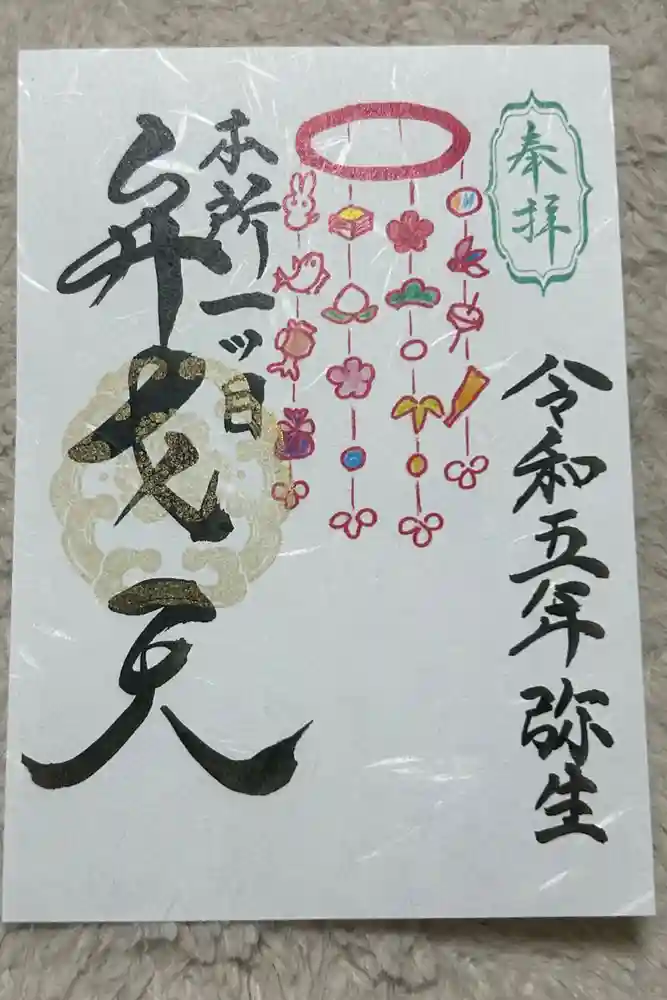 奉拝
令和五年弥生
本所一ッ目
弁戈天